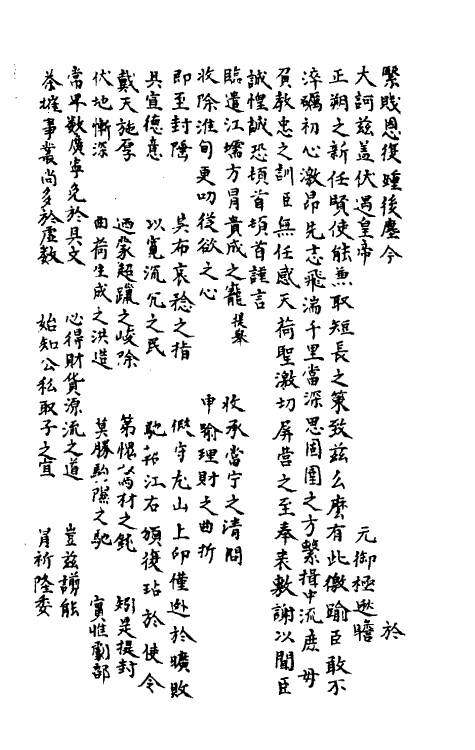 緊賤恩復踵後塵今　於
大訶茲蓋伏遇皇帝　元御極丕瞻
正朔之新任賢使能兼取短長之策致茲么麽有此僥踰臣敢不
淬礪初心激昂先志飛湍千里當深思固圉之方繫揖中流庶毋
負教忠之訓臣無任感天荷聖激切屏營之至奉表歎謝以聞臣
誠惶誠恐頓首頓首謹言
臨遣江壖方冒責成之寵提舉　收承當宁之清問
收除淮甸更叨從欲之心　申諭理財之曲折
即至封隆　具布哀矜之指　假守左山上印僅逃於曠敗
具宣德意　以寬流冗之民　馳 江右頒復玷於使令
戴天施厚　洒蒙超躐之峻除　第慚 材之鈍　矧是提封
伏地慚深　曲荷生成之洪造　莫勝駒隙之馳　實惟劇部
當早歎廣寧免於具文　心得財貨源流之道　豈茲謭能
荃摧事叢尚多於虛數　始知公私取予之宜　肯祈隆委